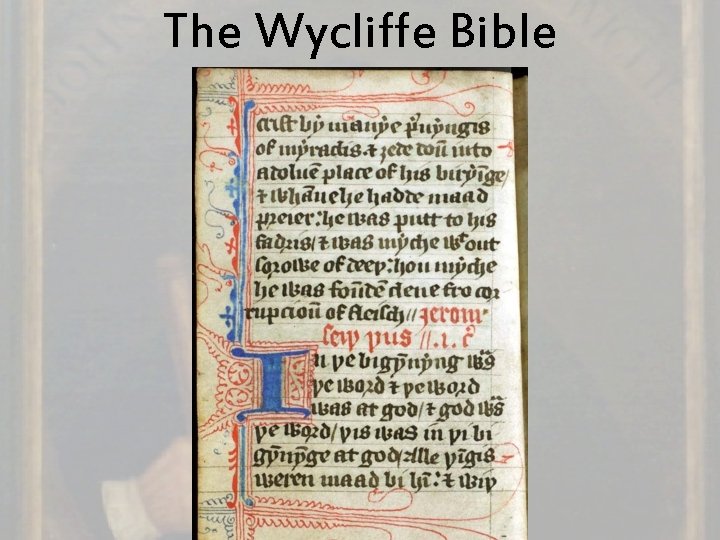 The Wycliffe Bible
crist bi manye p͛uyngis
of myraclis. ⁊ ȝede dou̅ into
a doluē place of his biryīge/
⁊ whāne he hadde maad
preier: he was putt to his
fadris/ ⁊ was myche wͭout
sorowe of deeþ: hou myche
he was foūdē clene fro cor
rupcioū of fleisch // Jerom
seiþ þus //.i. c̊
In þe bigȳnyng was
þe word ⁊ þe word
was at god/ ⁊ god was
þe word/ þis was in þi bi
gȳnȳge at god/ alle þīgis
weren maad bi hī: ⁊ wiþ